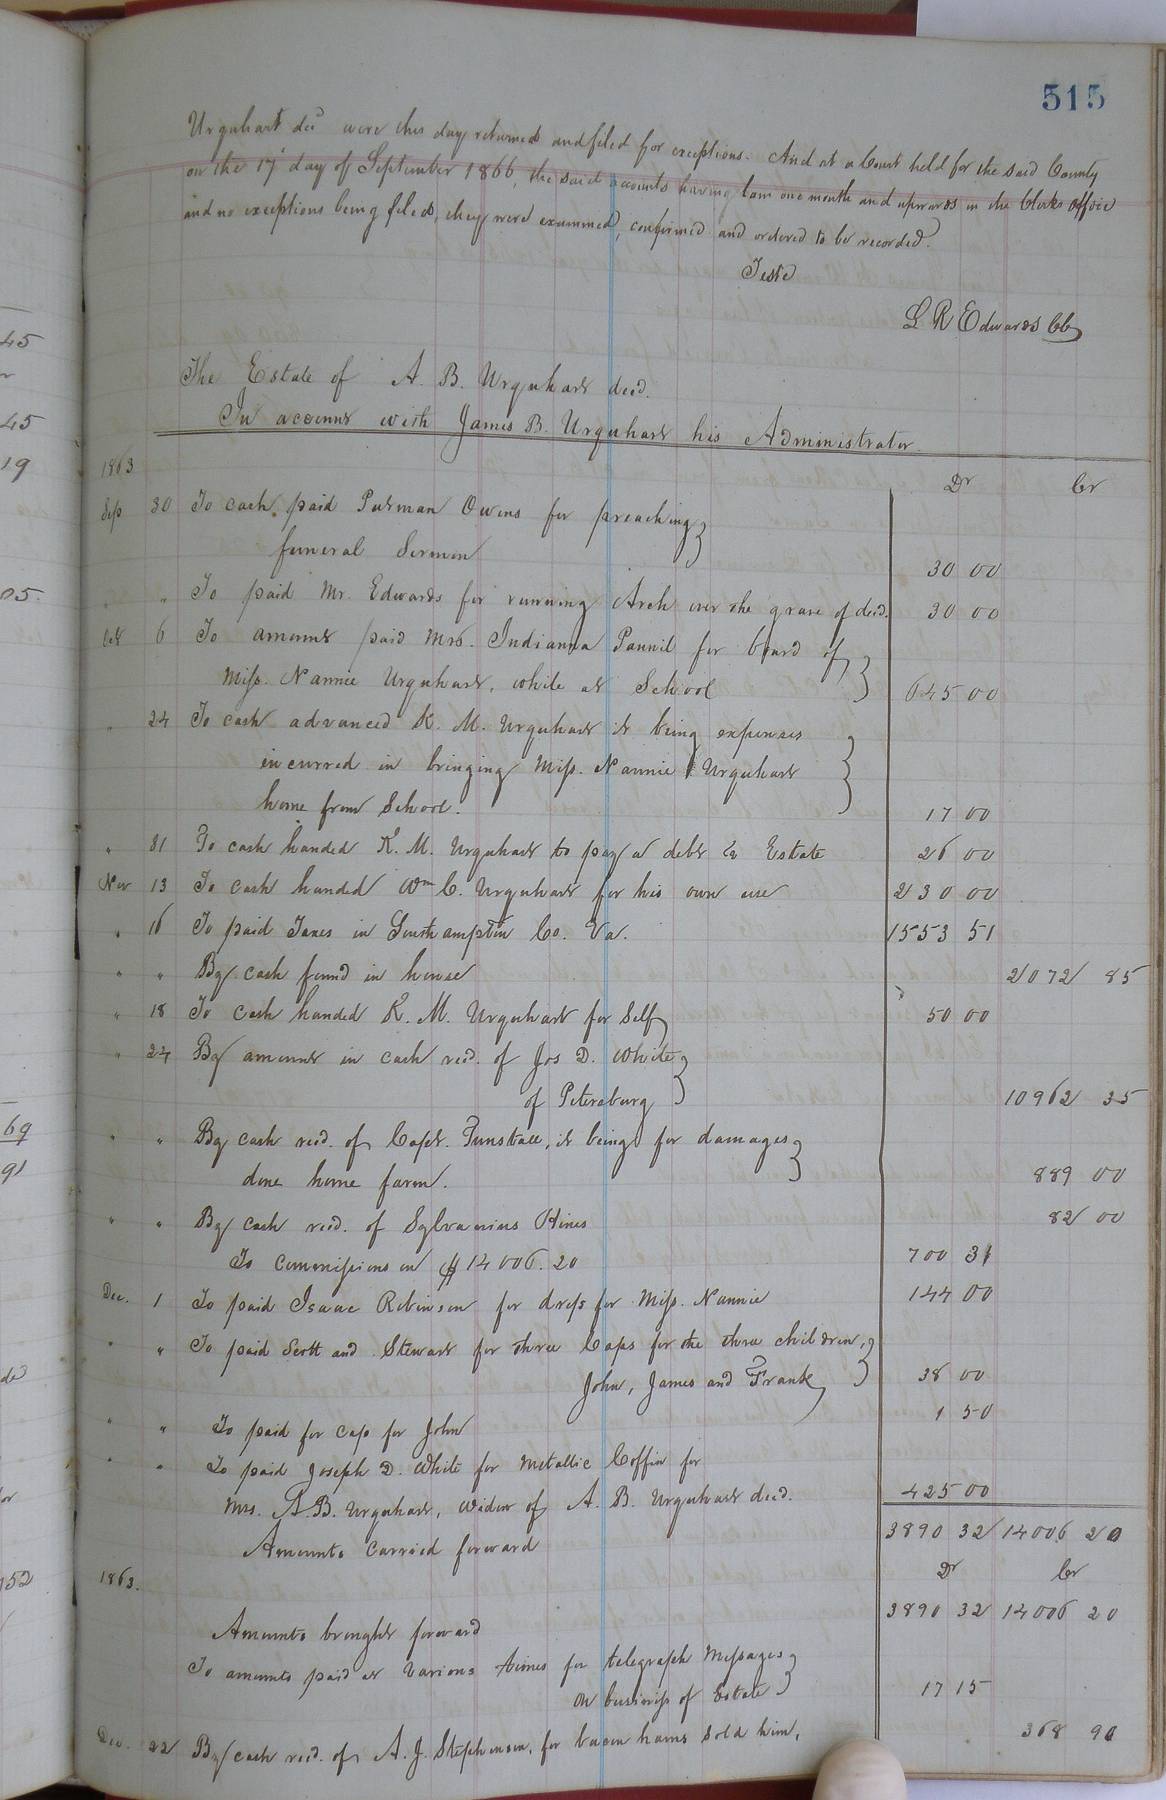 515
Urquhart decd were this day returned and filed for exceptions. And at a Court held for the said County
on the 17th day of September 1866, the said accounts having lain one month and upwards in the Clerks Office
and no exceptions being filed, they were examined, confirmed and ordered to be recorded.
Teste
L R Edwards Clk
The Estate of A. B. Urquhart decd.
In account with James B. Urquhart his Administrator
1863
Dr Cr
Sep 30 To cash paid Putman Owens for preaching
funeral Sermon 30 00
" " To paid Mr. Edwards for running Arch over the grave of decd. 30 00
Oct 6 To amount paid Mrs. Indianna Pannil for board of
Miss. Nannie Urquhart, while at School 645 00
" 24 To cash advanced K. M. Urquhart it being expenses
incurred in bringing Miss. Nannie Urquhart
home from School. 17 00
" 31 To cash handed K. M. Urquhart to pay a debt Estate 26 00
Nov 13 To cash handed Wm C. Urquhart for his own use 230 00
" 16 To paid Taxes in Southampton Co. Va. 1553 51
" " By cash found in house 2072 85
" 18 To cash handed K. M. Urquhart for Self 50 00
" 24 By amount in cash recd. of Jos D. White
of Petersburg 10962 35
" " By cash recd. of Capt. Tunstall, it being for damages
done home farm. 889 00
" " By cash recd. of Sylvanius Hines 82 00
To Commissions on $14006.20 700 31
Dec. 1 To paid Isaac Robinson for dress for Miss. Nannie 144 00
" " To paid Scott and Stewart for three Caps for the three children,
John, James and Frank 38 00
" " To paid for cap for John 1 50
" " To paid Joseph D. White for Metallic Coffin for
Mrs. A. B. Urquhart, widow of A. B. Urquhart decd. 425 00
Amounts carried forward 3890 32 14006 20
1863. Dr Cr
Amounts brought forward 3890 32 14006 20
To amounts paid at various times for telegraph Messages
on business of Estate 17 15
Dec. 22 By cash recd. of A. J. Stephenson, for bacon hams sold him, 368 90
45
45
19
05.
69
91
152